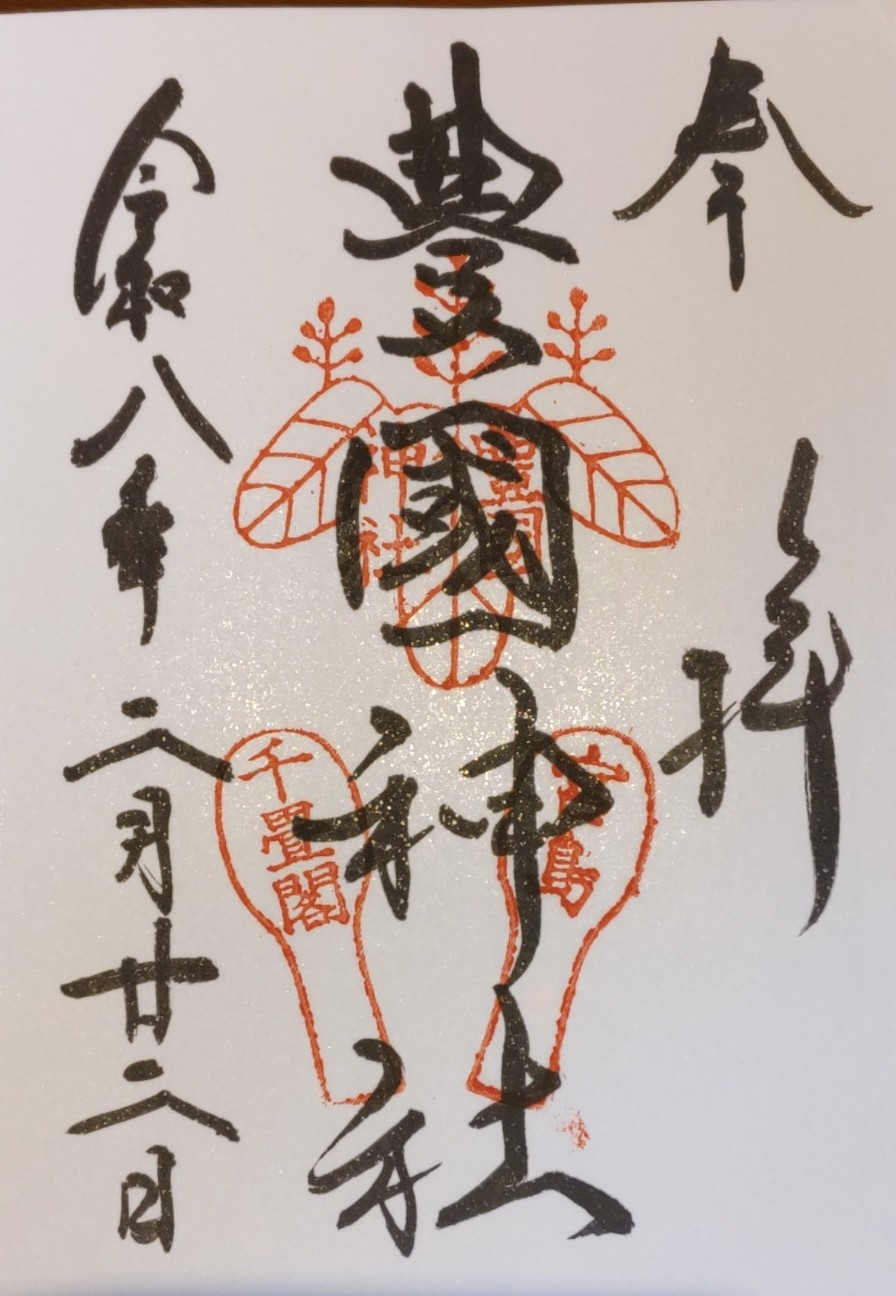 奉拝
豊國神社
豊国
神社
宮島
千畳閣
令和八年二月廿二日